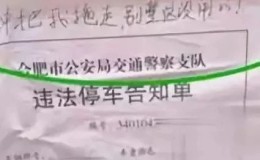 把我拖走,别整这没用的!
合肥市公安局交通警察支队
违法停车告知单
编号:340104